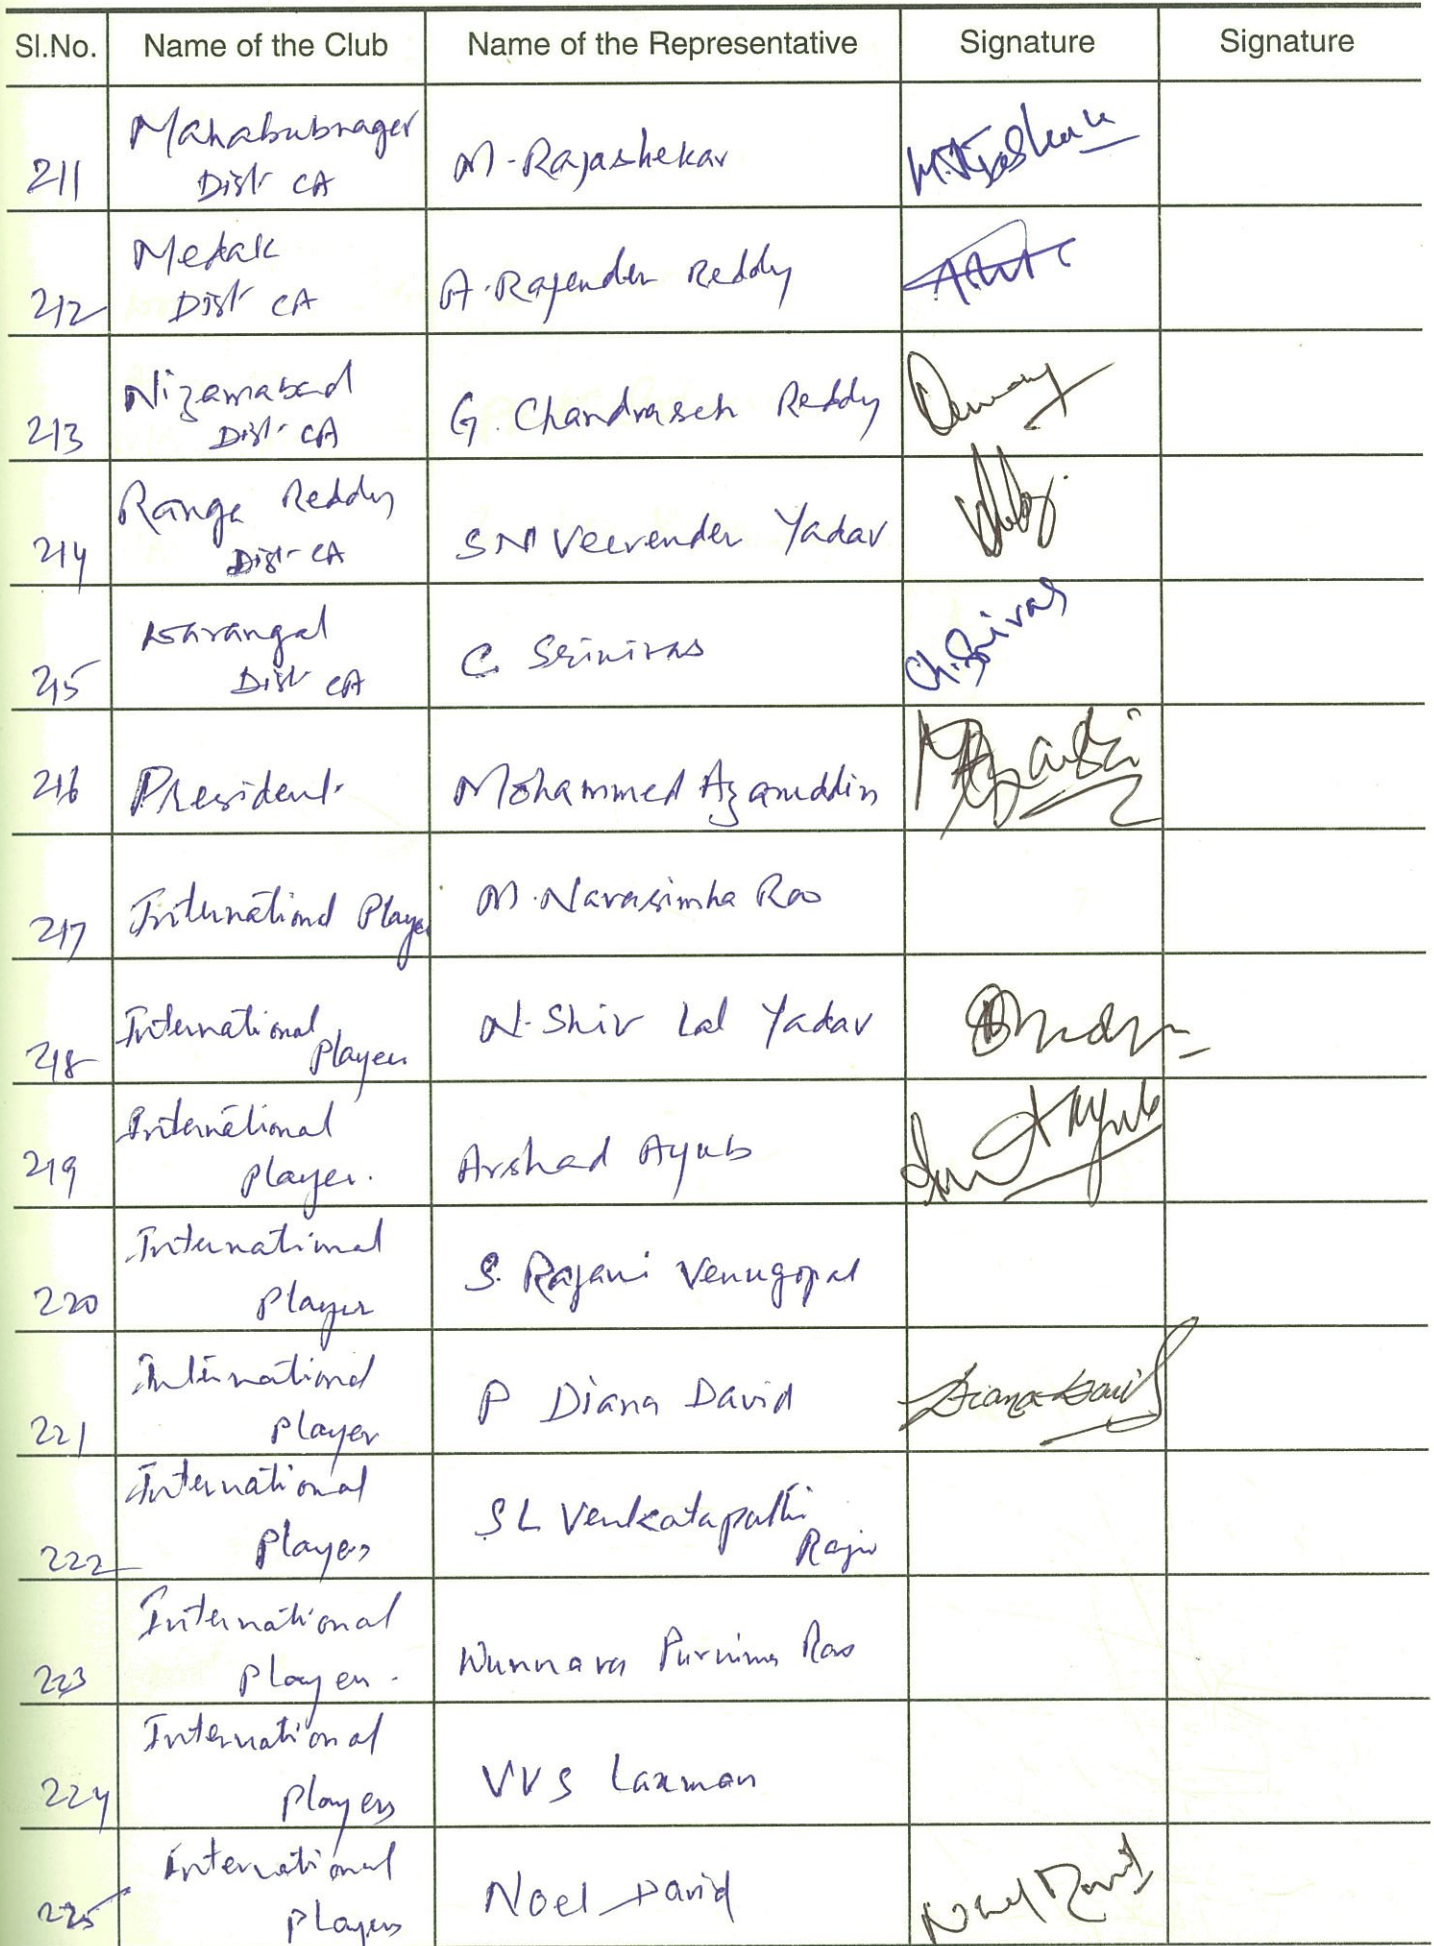 Sl.No. Name of the Club Name of the Representative Signature Signature
211 Mahabubnager
Dist CA M. Rajashekar
212 Medak
Dist CA A. Rajender Reddy
213 Nizamabad
Dist. CA G. Chandrasek Reddy
214 Ranga Reddy
Dist CA SN Veerender Yadav
215 Warangal
Dist CA C. Srinivas Ch.Srivas
216 President. Mohammed Azaruddin
217 International Player M. Narasimha Rao
218 International
Player N. Shiv Lal Yadav
219 International
Player. Arshad Ayub Ayub
220 International
Player S. Rajani Venugopal
221 International
Player P Diana David Diana David
222 International
Players SL Venkatapathi
Raju
223 International
Player. Nunnava Purnima Rao
224 International
Players VVS Laxman
225 International
Players Noel David Noel David